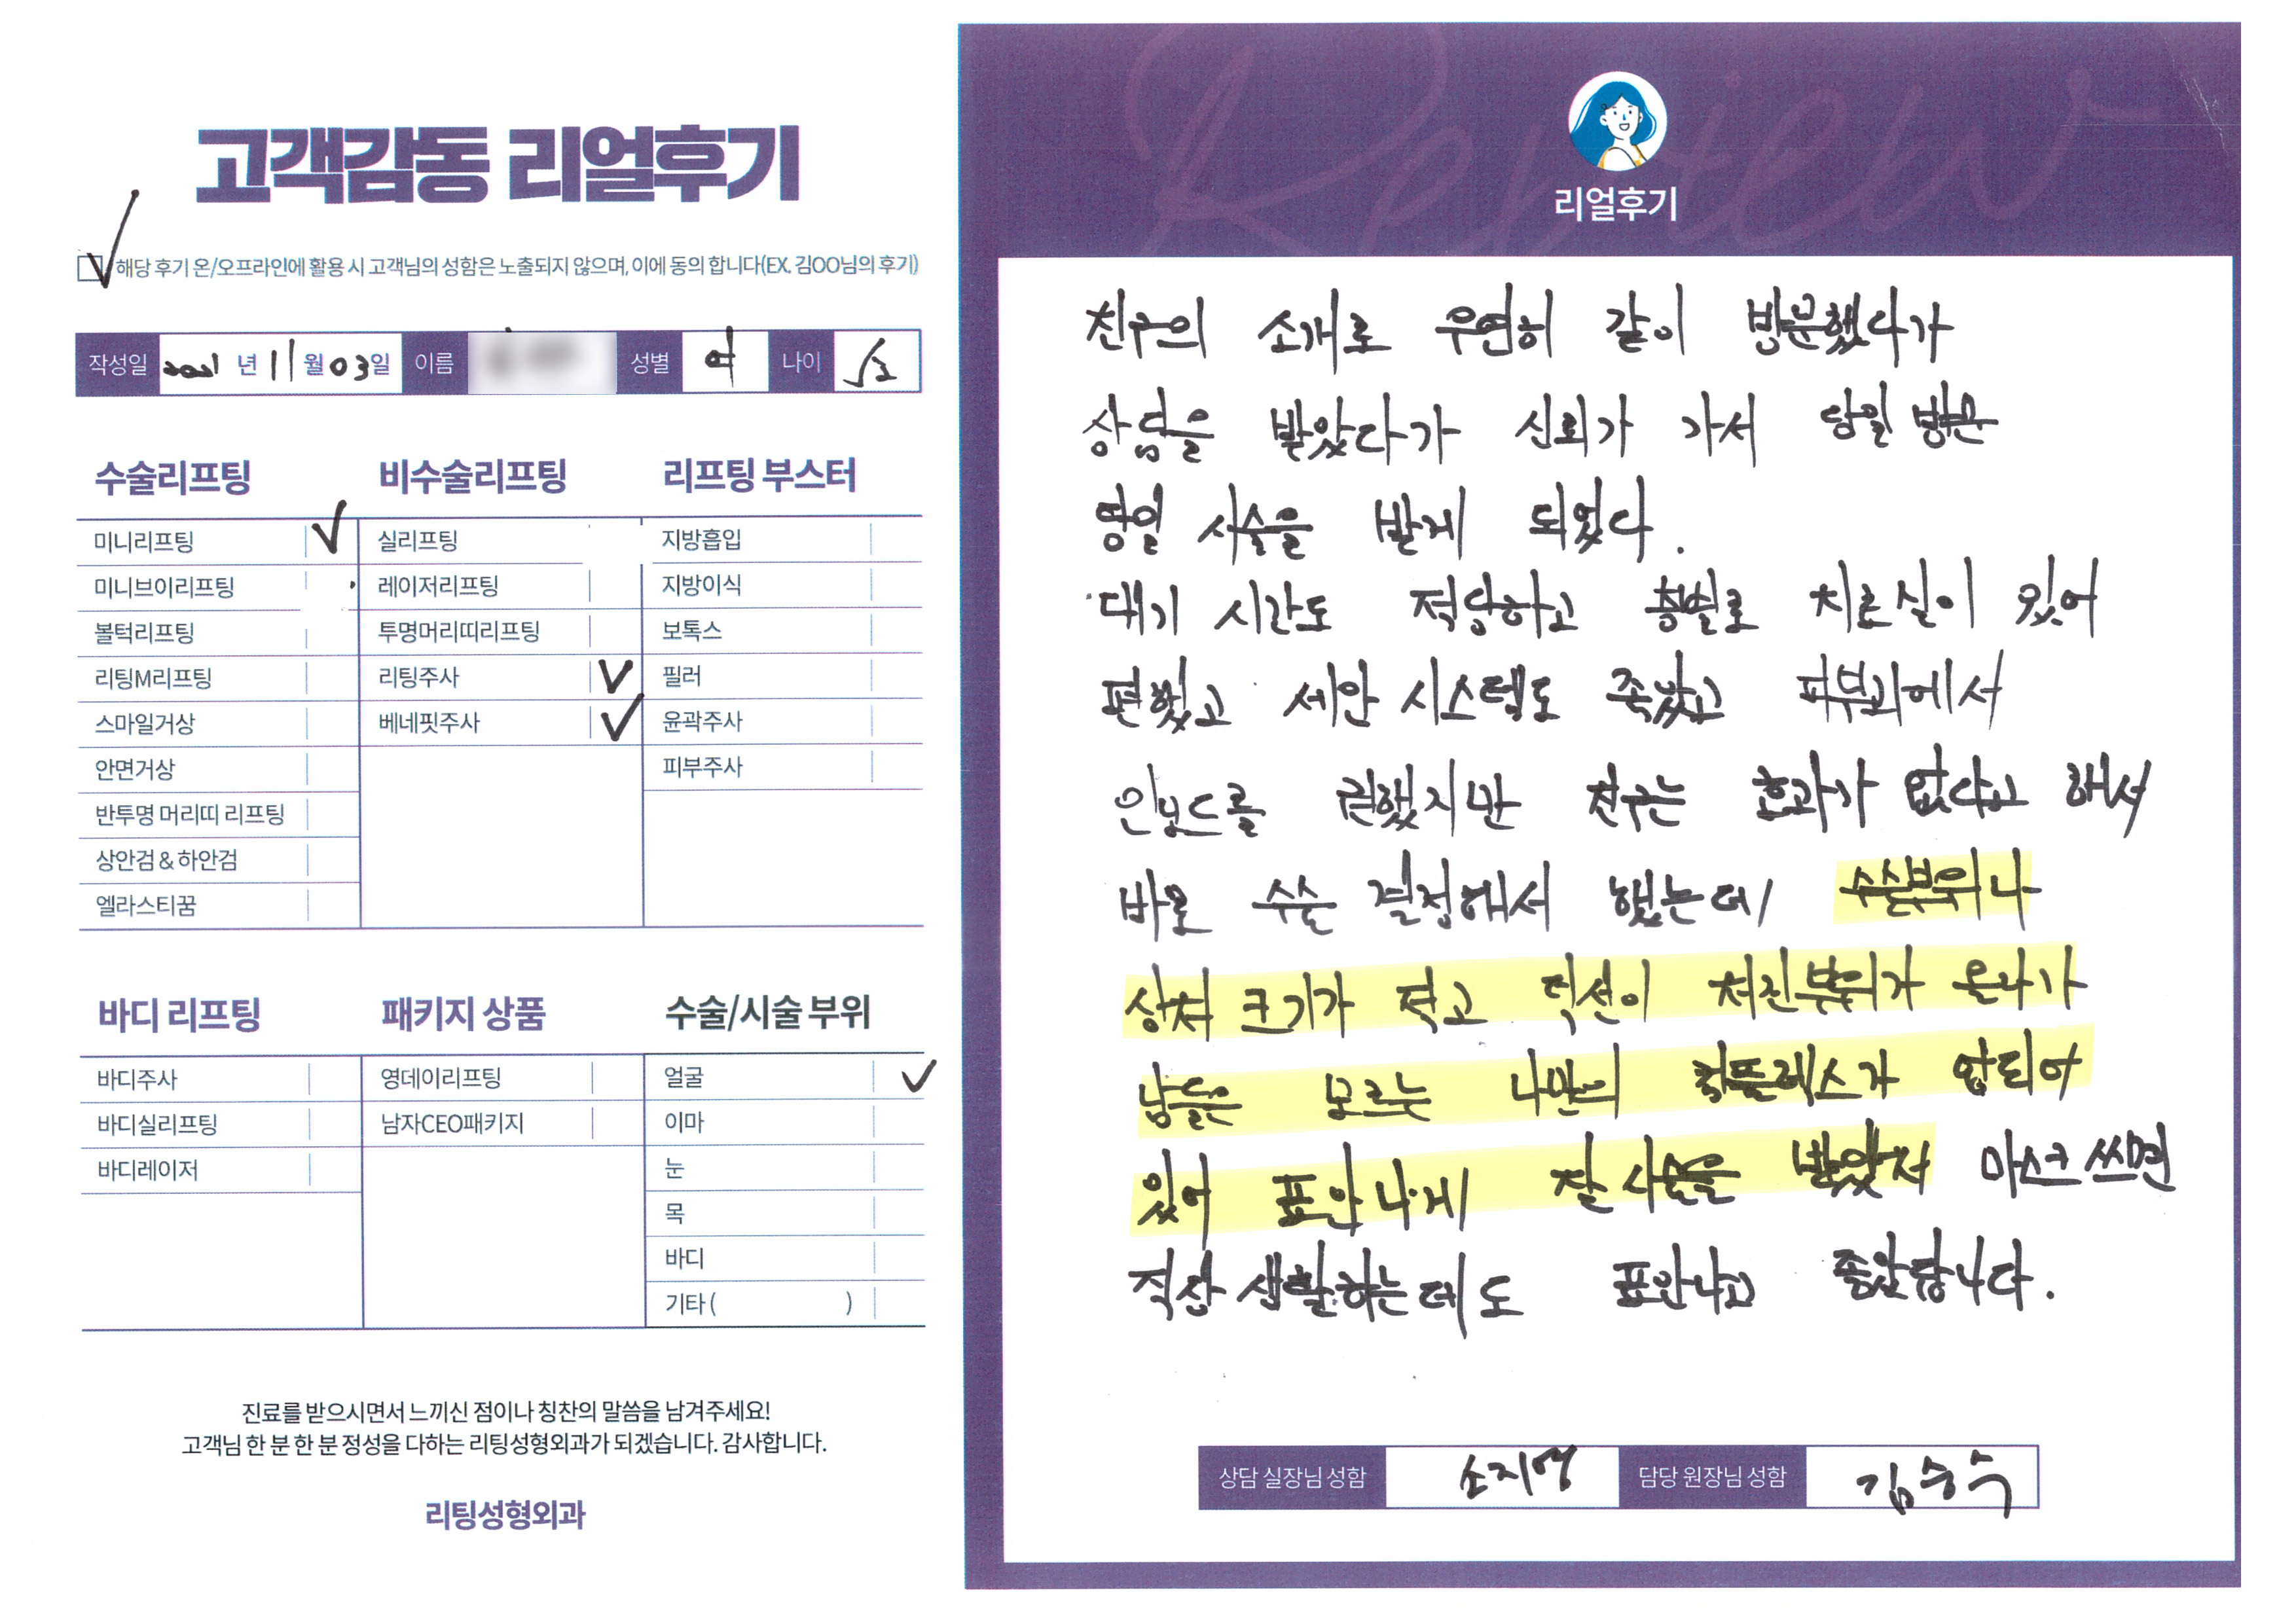 고객감동 리얼후기
해당 후기 온/오프라인에 활용 시 고객님의 성함은 노출되지 않으며, 이에 동의 합니다(EX. 김OO님의 후기)
작성일 2021 년 11 월 03 일 이름 성별 여 나이
수술리프팅
미니리프팅
미니브이리프팅
볼턱리프팅
리팅M리프팅
스마일거상
안면거상
반투명 머리띠 리프팅
상안검 & 하안검
엘라스티꿈
비수술리프팅
실리프팅
레이저리프팅
투명머리띠리프팅
리팅주사
베네핏주사
리프팅 부스터
지방흡입
지방이식
보톡스
필러
윤곽주사
피부주사
바디 리프팅
바디주사
바디실리프팅
바디레이저
패키지 상품
영데이리프팅
남자CEO패키지
수술/시술 부위
얼굴
이마
눈
목
바디
기타 ( )
진료를 받으시면서 느끼신 점이나 칭찬의 말씀을 남겨주세요!
고객님 한 분 한 분 정성을 다하는 리팅성형외과가 되겠습니다. 감사합니다.
리팅성형외과
Review
리얼후기
친구의 소개로 우연히 같이 방문했다가
상담을 받았다가 신뢰가 가서 당일 방문
당일 시술을 받게 되었다.
대기 시간도 적당하고 층별로 치료실이 있어
편했고 세안 시스템도 좋았고 피부과에서
인모드를 권했지만 친구는 효과가 없다고 해서
바로 수술 결정해서 했는데 수술부위나
상처 크기가 적고 턱선이 쳐진부위가 올라가
남들은 모르는 나만의 컴플렉스가 압되어
있어 표안나게 잘 시술을 받았져 마스크 쓰면
직장 생활하는데도 표안나고 좋았답니다.
상담 실장님 성함 소지영 담당 원장님 성함 김승수